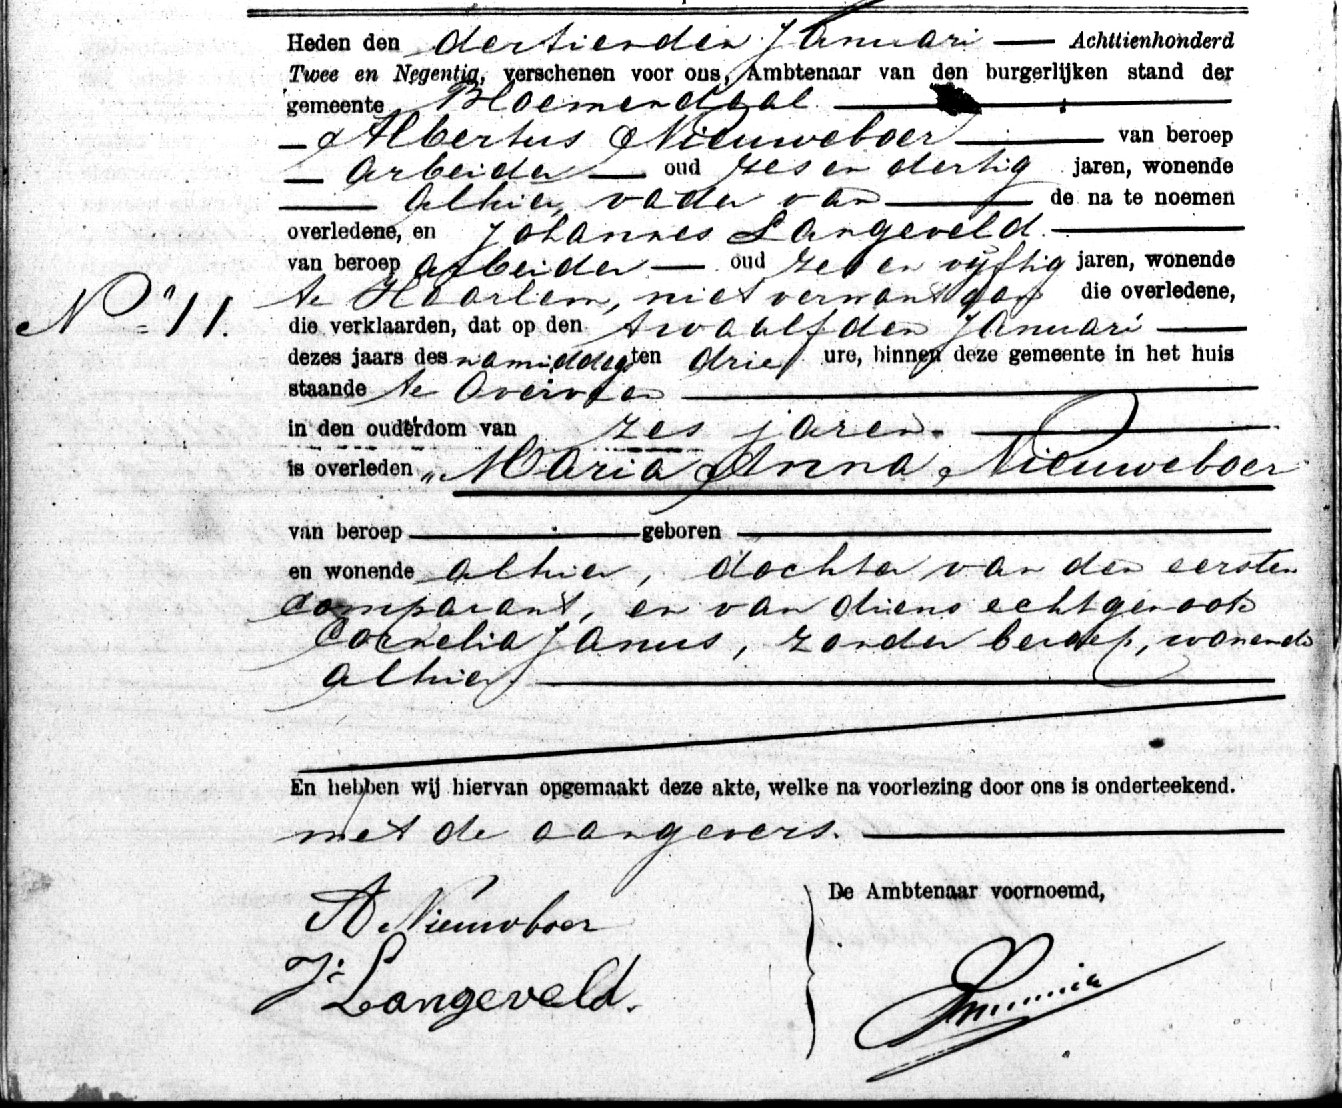 Heden den dertienden Januari Achttienhonderd
Twee en Negentig, verschenen voor ons, Ambtenaar van den burgerlijken stand der
gemeente Bloemendaal
Albertus Nieuweboer van beroep
arbeider oud zes en dertig jaren, wonende
alhier, vader van de na te noemen
overledene, en Johannes Langeveld
van beroep arbeider oud zes en vijftig jaren, wonende
te Haarlem, niet verwant aan die overledene,
Nº 11.
die verklaarden, dat op den twaalfden Januari
dezes jaars des namiddags ten drie ure, binnen deze gemeente in het huis
staande te Overveen
in den ouderdom van zes jaren.
is overleden Maria Anna Nieuweboer
van beroep geboren
en wonende alhier, dochter van den eersten
comparant, en van diens echtgenoote
Cornelia Janus, zonder beroep, wonende
alhier.
En hebben wij hiervan opgemaakt deze akte, welke na voorlezing door ons is onderteekend.
met de aangevers.
De Ambtenaar voornoemd,
A Nieuwboer
J. Langeveld.